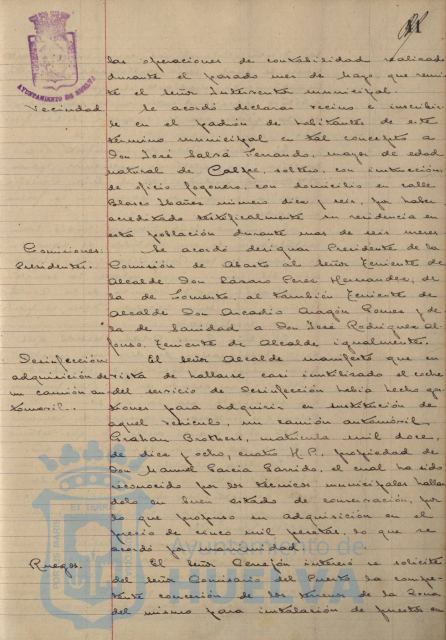 las operaciones de contabilidad realizada
durante el pasado mes de Mayo, que remi
te el Señor Interventor municipal.
Vecindad Se acordó declarar vecino e inscribir
le en el padrón de habitantes de este
término municipal en tal concepto a
Don José Salvá Ferrando, mayor de edad
natural de Calpe, soltero, con instrucción,
de oficio fogonero, con domicilio en calle
Blasco Ibañez número diez y seis, por haber
acreditado testificalmente su residencia en
esta población durante mas de seis meses
Comisiones: Se acordó designar Presidente de la
Presidentes. Comisión de Abasto al Señor Teniente de
Alcalde Don Lázaro Perez Hernandez, de
la de Fomento, al también Teniente de
Alcalde Don Arcadio Aragón Gomez y de
la de Sanidad a Don José Rodriguez Al-
fonso, Teniente de Alcalde igualmente.
Desinfección El Señor Alcalde manifestó que en
adquisición de vista de hallarse casi inutilizado el coche
un camión au del servicio de Desinfección había hecho ges
tomovil. tiones para adquirir en sustitución de
aquel vehiculo, un camión automóvil
Graham Brothers, matricula mil doce,
de diez y ocho, cuatro H.P., propiedad de
Don Manuel Garcia Garrido, el cual ha sido
reconocido por los técnicos municipales hallan
dolo en buen estado de conservación, por
lo que propuso su adquisición en el
precio de cinco mil pesetas, lo que se
acordó por unanimidad
Ruegos. El Señor interesó se solicite
del Señor Comisario del Puerto la compe-
tente concesión de los terrenos de la Zona
del mismo para instalación de puestos en
AYUNTAMIENTO DE HUELVA
Ayuntamiento de
HUELVA